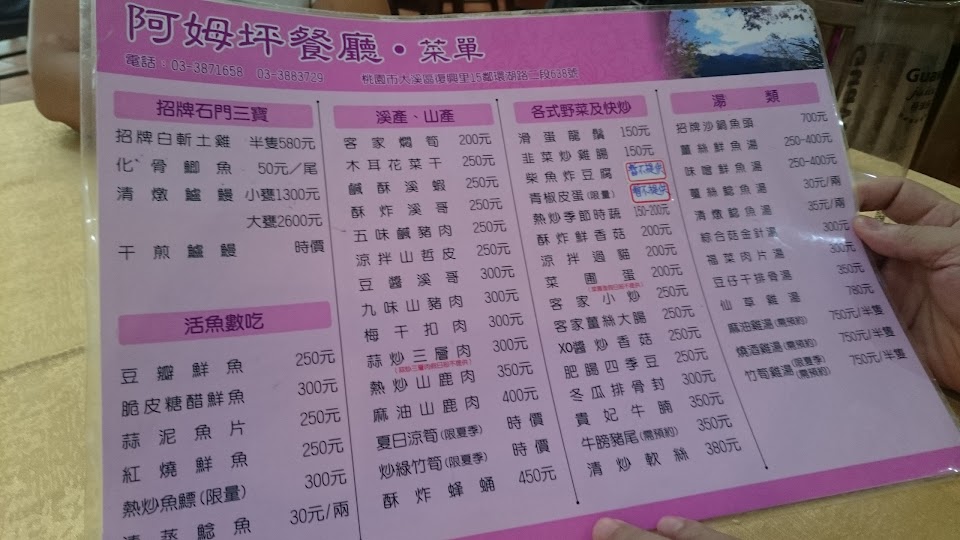 阿姆坪餐廳・菜單
電話：03-3871658 03-3883729 桃園市大溪區復興里15鄰環湖路二段638號
招牌石門三寶
招牌白斬土雞 半隻580元
化骨鯽魚 50元/尾
清燉鱸鰻 小甕1300元
大甕2600元
干煎鱸鰻 時價
活魚數吃
豆瓣鮮魚 250元
脆皮糖醋鮮魚 300元
蒜泥魚片 250元
紅燒鮮魚 250元
熱炒魚鰾(限量) 300元
清蒸鯰魚 30元/兩
溪產、山產
客家燜筍 200元
木耳花菜干 250元
鹹酥溪蝦 250元
酥炸溪哥 250元
五味鹹豬肉 250元
涼拌山哲皮 250元
豆醬溪哥 300元
九味山豬肉 300元
梅干扣肉 300元
蒜炒三層肉 300元
熱炒山鹿肉 350元
麻油山鹿肉 400元
夏日涼筍(限夏季) 時價
炒綠竹筍(限夏季) 時價
酥炸蜂蛹 450元
各式野菜及快炒
滑蛋龍鬚 150元
韭菜炒雞腸 150元
柴魚炸豆腐
青椒皮蛋(限量)
熱炒季節時蔬 150-200元
酥炸鮮香菇 200元
涼拌過貓 200元
菜圃蛋 200元
客家小炒 250元
客家薑絲大腸 250元
XO醬炒香菇 250元
肥腸四季豆 250元
冬瓜排骨封 300元
貴妃牛腩 350元
牛膀豬尾(需預約) 350元
清炒軟絲 380元
湯類
招牌沙鍋魚頭 700元
薑絲鮮魚湯 250-400元
味噌鮮魚湯 250-400元
薑絲鯰魚湯 30元/兩
清燉鯰魚湯 35元/兩
綜合菇金針湯 300元
福菜肉片湯 300元
豆仔干排骨湯 350元
仙草雞湯 780元
麻油雞湯(需預約) 750元/半隻
燒酒雞湯(需預約) 750元/半隻
竹筍雞湯(限夏季)(需預約) 750元/半隻